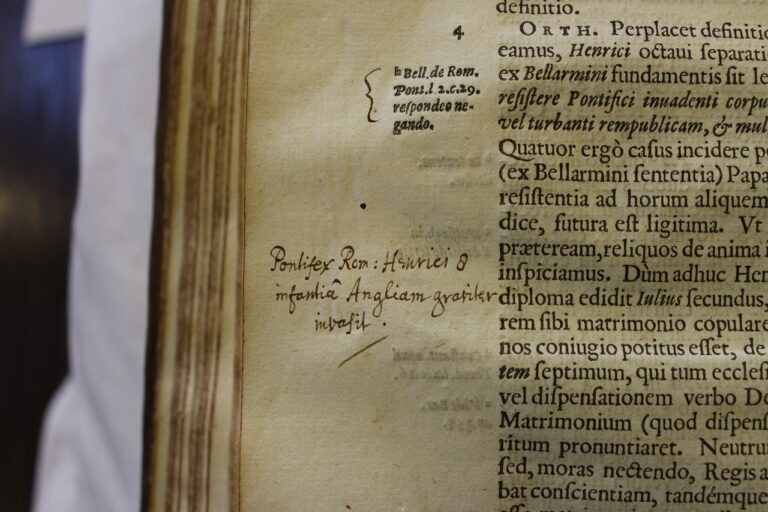 4
h Bell. de Rom.
Pont. l. 2. c. 29.
reſpondeo ne-
gando.
Pontifex Rom: Henrici 8
infantiâ Angliam graviter
invasit.
definitio.
ORTH. Perplacet definitio
eamus, Henrici octaui ſeparati
ex Bellarmini fundamentis ſit le
reſiſtere Pontifici inuadenti corpu
vel turbanti rempublicam, & mul
Quatuor ergò caſus incidere po
(ex Bellarmini ſententia) Papa
reſiſtentia ad horum aliquem
dice, futura eſt ligitima. Vt
præteream, reliquos de anima i
inſpiciamus. Dùm adhuc Hen
diploma edidit Iulius ſecundus,
rem ſibi matrimonio copulare
nos coniugio potitus eſſet, de
tem ſeptimum, qui tum eccleſi
vel diſpenſationem verbo De
Matrimonium (quod diſpenſ
ritum pronuntiaret. Neutru
ſed, moras nectendo, Regis a
bat conſcientiam, tandémque